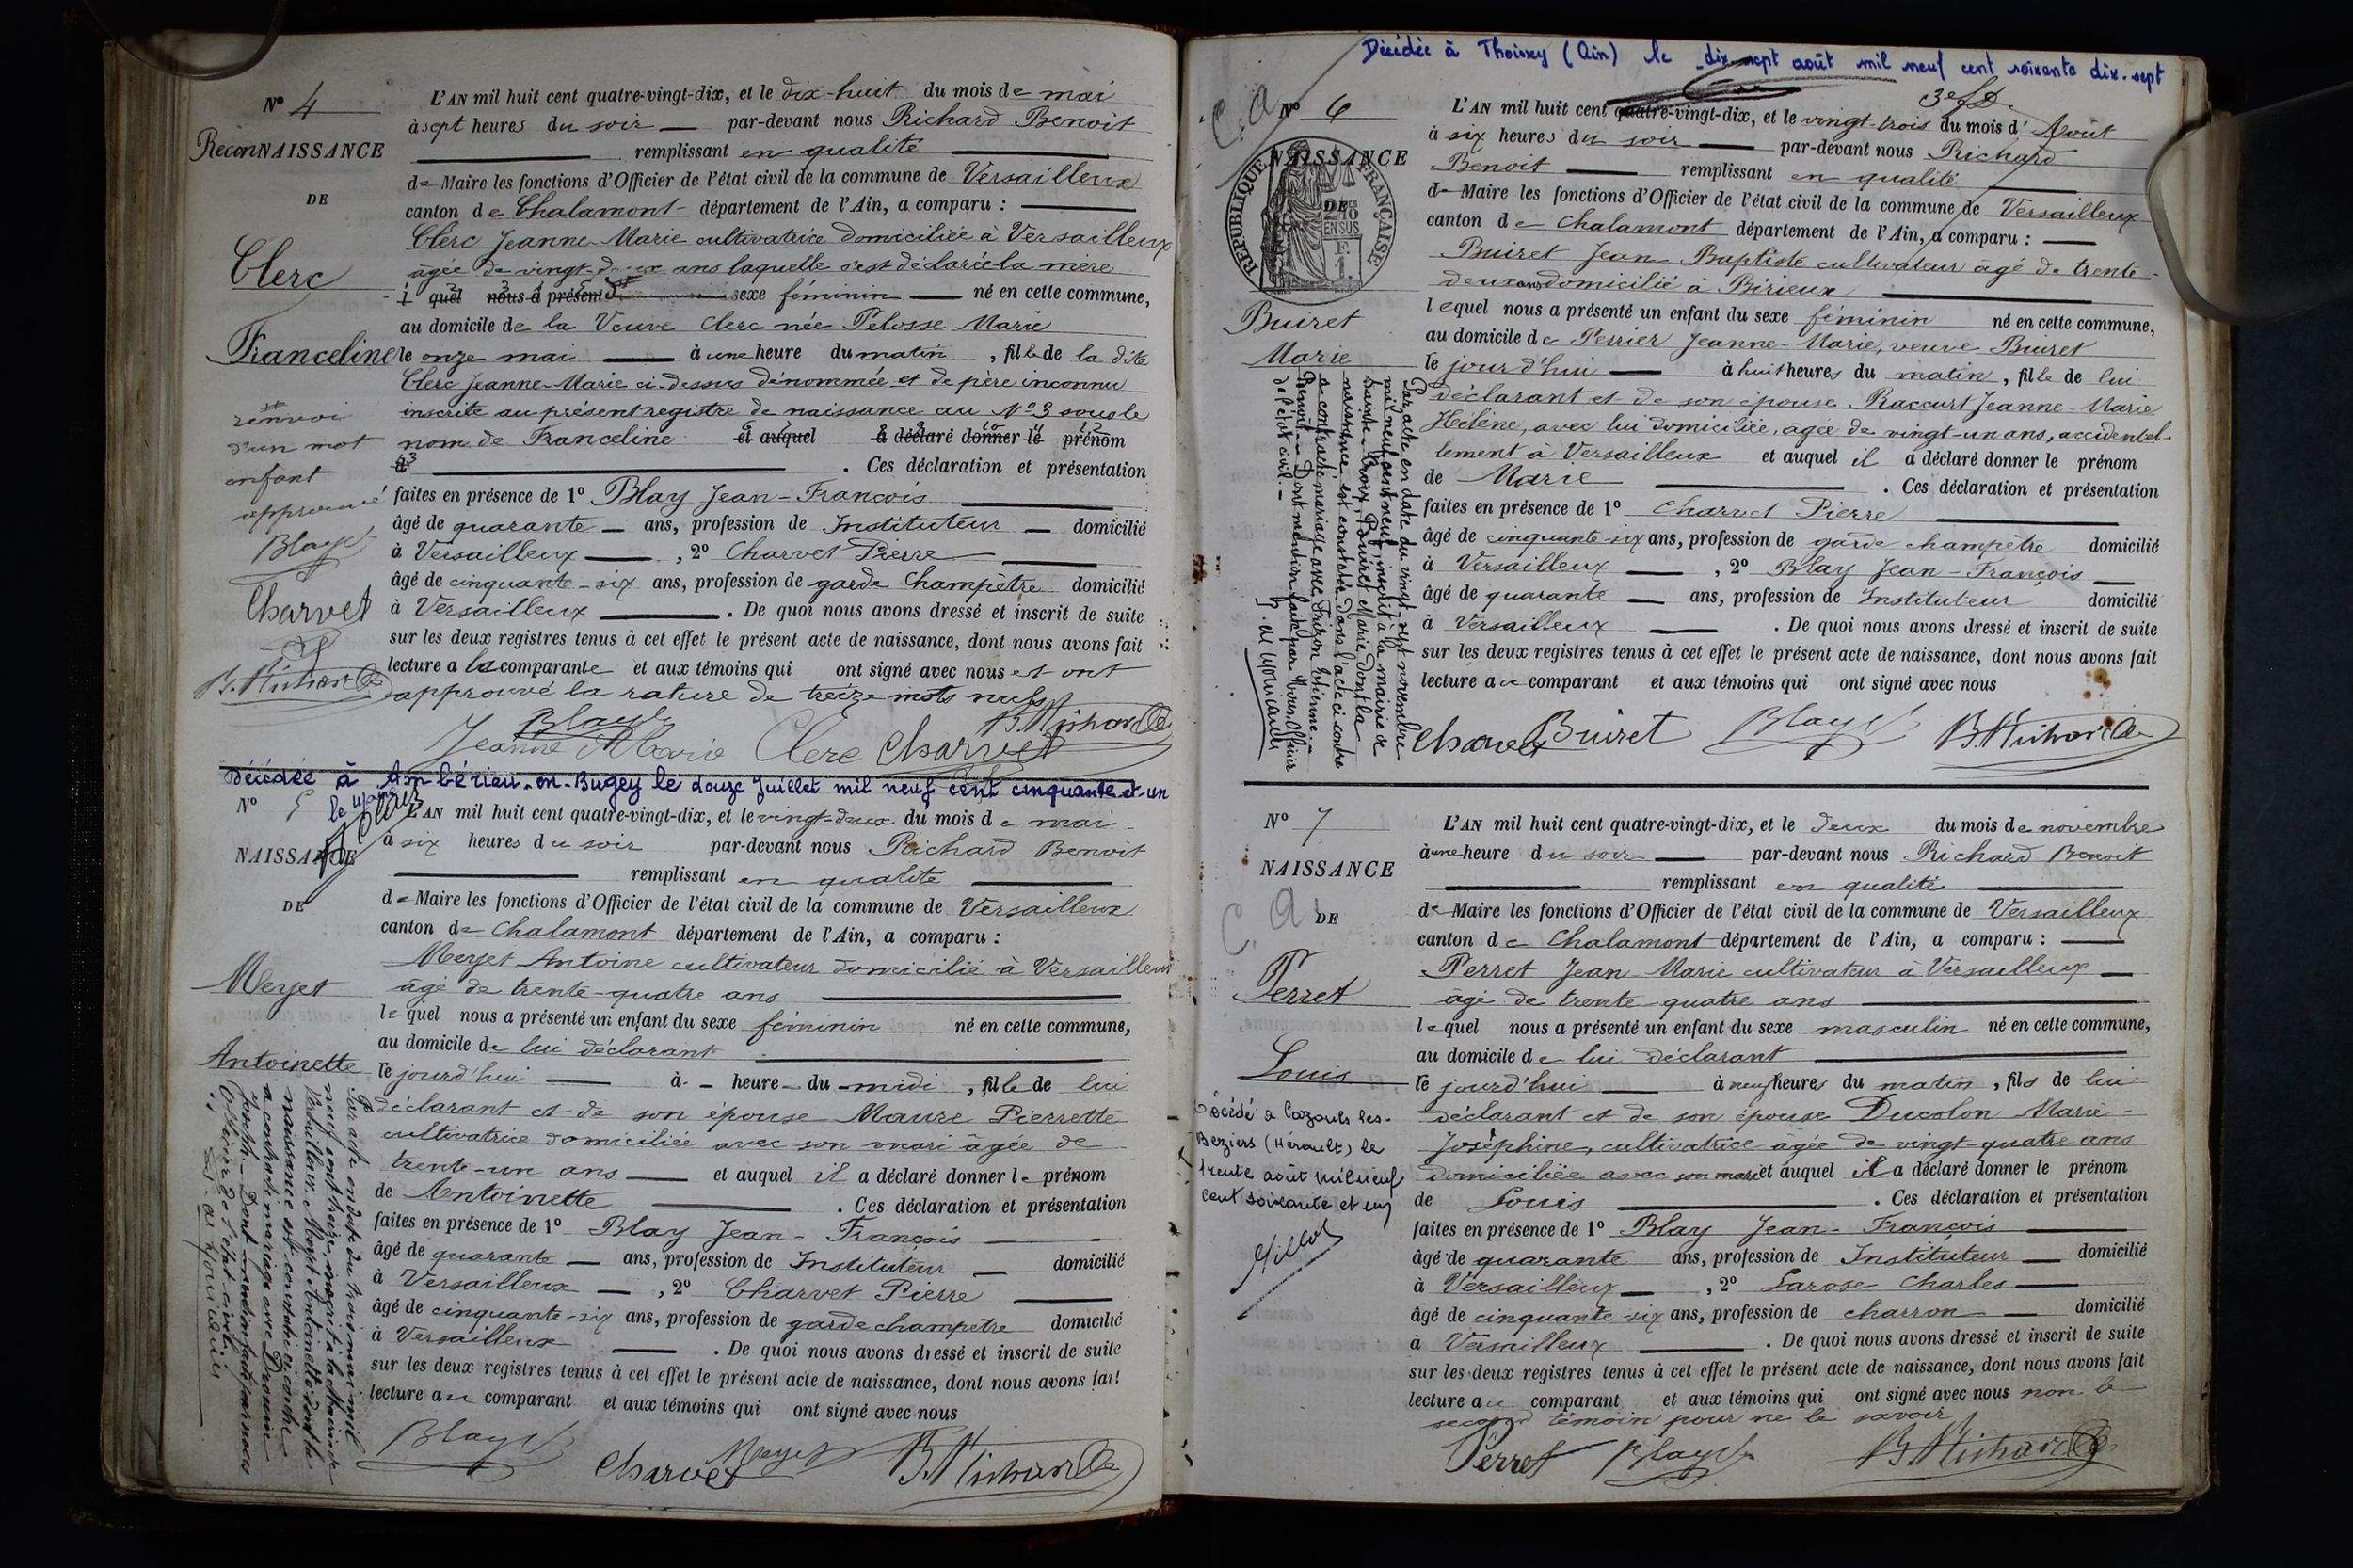 N° 4
ReconNAISSANCE
DE
Clerc
Franceline
renvoi
d'un mot
enfant
approuvé
Blay
Charvet
B. Richard
L'AN mil huit cent quatre-vingt-dix, et le dix-huit du mois de mai
à sept heures du soir par-devant nous Richard Benoit
remplissant en qualité
de Maire les fonctions d'Officier de l'état civil de la commune de Versailleux
canton de Chalamont département de l'Ain, a comparu :
Clerc Jeanne-Marie cultivatrice domiciliée à Versailleux
âgée de vingt-deux ans laquelle s'est déclarée la mère
l quel nous a présenté sexe féminin né en cette commune,
au domicile de la Veuve Clerc née Pelosse Marie
le onze mai à une heure du matin, fille de la dite
Clerc Jeanne-Marie ci-dessus dénommée et de père inconnu
inscrite au présent registre de naissance au N° 3 sous le
nom de Franceline et auquel a déclaré donner le prénom
d . Ces déclaration et présentation
faites en présence de 1° Blay Jean-François
âgé de quarante ans, profession de Instituteur domicilié
à Versailleux , 2° Charvet Pierre
âgé de cinquante-six ans, profession de garde champêtre domicilié
à Versailleux . De quoi nous avons dressé et inscrit de suite
sur les deux registres tenus à cet effet le présent acte de naissance, dont nous avons fait
lecture a la comparante et aux témoins qui ont signé avec nous et ont
approuvé la rature de treize mots nuls
Blay B. Richard
Jeanne Marie Clerc Charvet
Décédée à Ambérieu-en-Bugey le douze Juillet mil neuf cent cinquante-et-un
N° 5
NAISSANCE
DE
Meyet
Antoinette
Par acte en date du trois mai mil
neuf cent treize, inscrit à la Mairie de
Versailleux, Meyet Antoinette dont la
naissance est constatée ci-contre
a contracté mariage avec Drouin
Joseph. Dont mention faite par nous
Officier de l'état civil.
L'AN mil huit cent quatre-vingt-dix, et le vingt-deux du mois de mai
à six heures du soir par-devant nous Richard Benoit
remplissant en qualité
de Maire les fonctions d'Officier de l'état civil de la commune de Versailleux
canton de Chalamont département de l'Ain, a comparu :
Meyet Antoine cultivateur domicilié à Versailleux
âgé de trente-quatre ans
lequel nous a présenté un enfant du sexe féminin né en cette commune,
au domicile de lui déclarant
le jourd'hui à - heure - du - midi, fille de lui
déclarant et de son épouse Maure Pierrette
cultivatrice domiciliée avec son mari âgée de
trente-un ans et auquel il a déclaré donner le prénom
de Antoinette . Ces déclaration et présentation
faites en présence de 1° Blay Jean-François
âgé de quarante ans, profession de Instituteur domicilié
à Versailleux , 2° Charvet Pierre
âgé de cinquante-six ans, profession de garde champêtre domicilié
à Versailleux . De quoi nous avons dressé et inscrit de suite
sur les deux registres tenus à cet effet le présent acte de naissance, dont nous avons fait
lecture au comparant et aux témoins qui ont signé avec nous
Blay Charvet Meyet B. Richard
Décédée à Thoissey (Ain) le dix-sept août mil neuf cent soixante dix-sept
C. A
N° 6
NAISSANCE
DE
RÉPUBLIQUE FRANÇAISE
Buiret
Marie
Par acte en date du vingt sept novembre
mil neuf cent neuf, inscrit à la mairie de
Sainte-Croix, Buiret Marie dont la
naissance est constatée dans l'acte ci contre
a contracté mariage avec Frizon Etienne
Benoit. Dont mention faite par nous Officier
de l'état civil.
L'AN mil huit cent quatre-vingt-dix, et le vingt-trois du mois d'Août
à six heures du soir par-devant nous Richard
Benoit remplissant en qualité
de Maire les fonctions d'Officier de l'état civil de la commune de Versailleux
canton de Chalamont département de l'Ain, a comparu :
Buiret Jean Baptiste cultivateur âgé de trente-
deux ans domicilié à Birieux
lequel nous a présenté un enfant du sexe féminin né en cette commune,
au domicile de Perrier Jeanne-Marie, veuve Buiret
le jourd'hui à huit heures du matin, fille de lui
déclarant et de son épouse Raccurt Jeanne-Marie
Hélène, avec lui domiciliée, âgée de vingt-un ans, accidentel-
lement à Versailleux et auquel il a déclaré donner le prénom
de Marie . Ces déclaration et présentation
faites en présence de 1° Charvet Pierre
âgé de cinquante-six ans, profession de garde champêtre domicilié
à Versailleux , 2° Blay Jean-François
âgé de quarante ans, profession de Instituteur domicilié
à Versailleux . De quoi nous avons dressé et inscrit de suite
sur les deux registres tenus à cet effet le présent acte de naissance, dont nous avons fait
lecture au comparant et aux témoins qui ont signé avec nous
Charvet Buiret Blay B. Richard
N° 7
NAISSANCE
C. A
DE
Perret
Louis
Décédé à Cazouls les-
Béziers (Hérault) le
trente août mil neuf
cent soixante et un
L'AN mil huit cent quatre-vingt-dix, et le deux du mois de novembre
à une heure du soir par-devant nous Richard Benoit
remplissant en qualité
de Maire les fonctions d'Officier de l'état civil de la commune de Versailleux
canton de Chalamont département de l'Ain, a comparu :
Perret Jean Marie cultivateur à Versailleux
âgé de trente quatre ans
lequel nous a présenté un enfant du sexe masculin né en cette commune,
au domicile de lui déclarant
le jourd'hui à neuf heures du matin, fils de lui
déclarant et de son épouse Ducolon Marie-
Joséphine, cultivatrice âgée de vingt-quatre ans
domiciliée avec son mari et auquel il a déclaré donner le prénom
de Louis . Ces déclaration et présentation
faites en présence de 1° Blay Jean-François
âgé de quarante ans, profession de Instituteur domicilié
à Versailleux , 2° Larose Charles
âgé de cinquante-six ans, profession de charron domicilié
à Versailleux . De quoi nous avons dressé et inscrit de suite
sur les deux registres tenus à cet effet le présent acte de naissance, dont nous avons fait
lecture au comparant et aux témoins qui ont signé avec nous non le
second témoin pour ne le savoir
Perret Blay B. Richard